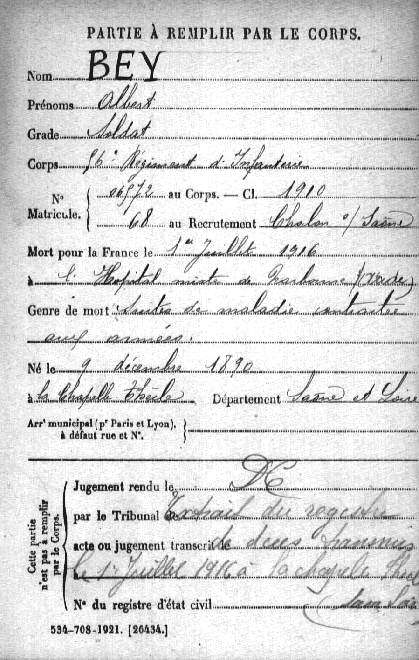 PARTIE À REMPLIR PAR LE CORPS.
Nom BEY
Prénoms Albert
Grade Soldat
Corps 56e Régiment d'Infanterie
N° Matricule. 06572 au Corps. — Cl. 1910
68 au Recrutement Chalon s/ Saône
Mort pour la France le 1er Juillet 1916
à l'Hopital mixte de Narbonne (Aude)
Genre de mort Suites de maladie contractée
aux armées.
Né le 9 décembre 1890
à la Chapelle Thècle Département Saône et Loire
Arrt municipal (pr Paris et Lyon),
à défaut rue et N°.
Cette partie n'est pas à remplir par le Corps.
Jugement rendu le DC
par le Tribunal de Extrait du registre
acte ou jugement transcrit le de décès transmis
le 1r Juillet 1916 à la chapelle
N° du registre d'état civil
534-708-1921. [26434.]